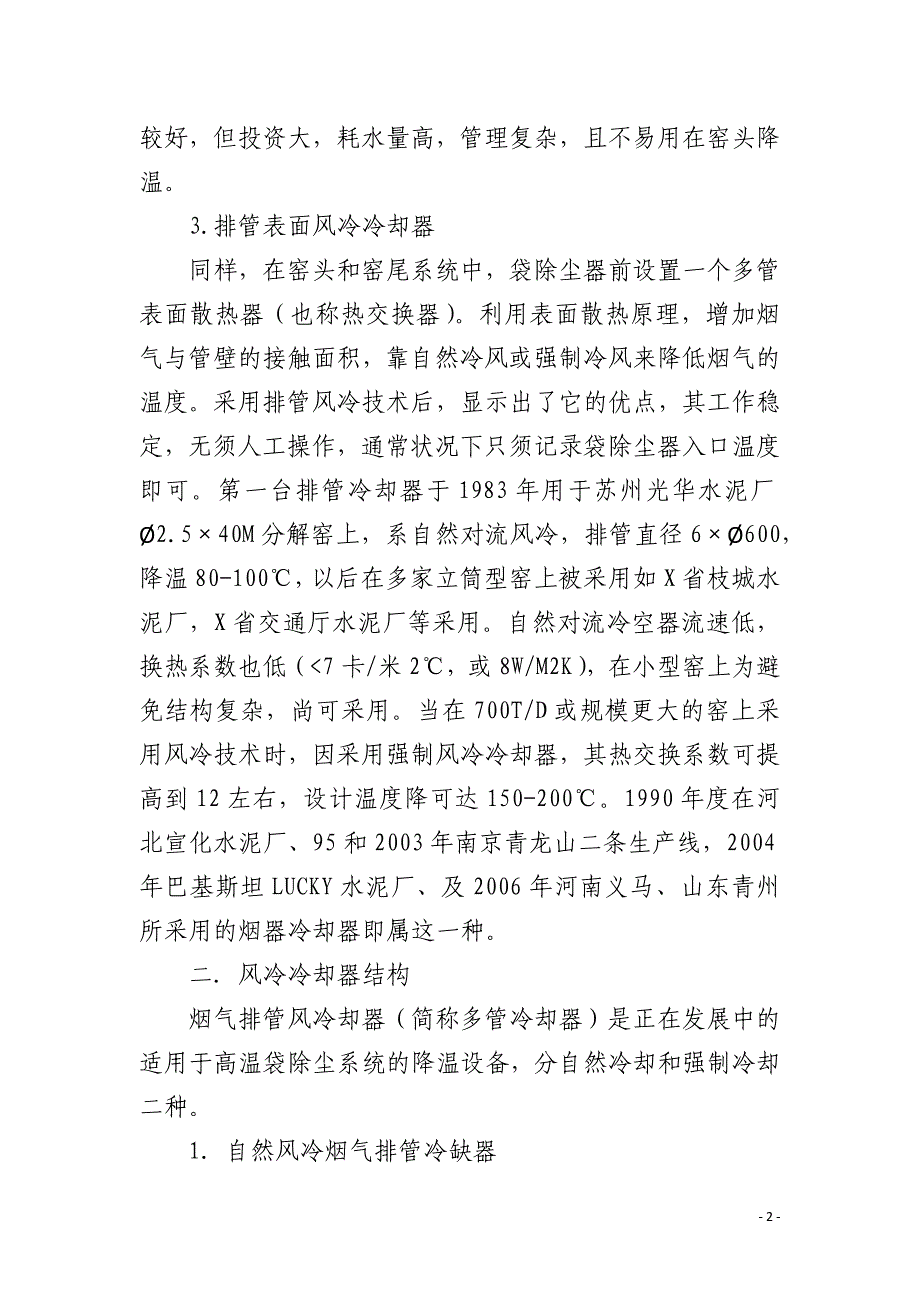 较好，但投资大，耗水量高，管理复杂，且不易用在窑头降
温。
3.排管表面风冷冷却器
同样，在窑头和窑尾系统中，袋除尘器前设置一个多管
表面散热器（也称热交换器）。利用表面散热原理，增加烟
气与管壁的接触面积，靠自然冷风或强制冷风来降低烟气的
温度。采用排管风冷技术后，显示出了它的优点，其工作稳
定，无须人工操作，通常状况下只须记录袋除尘器入口温度
即可。第一台排管冷却器于 1983 年用于苏州光华水泥厂
Ø2.5×40M 分解窑上，系自然对流风冷，排管直径 6×Ø600，
降温 80-100℃，以后在多家立筒型窑上被采用如 X 省枝城水
泥厂，X 省交通厅水泥厂等采用。自然对流冷空器流速低，
换热系数也低（<7 卡/米 2℃，或 8W/M2K），在小型窑上为避
免结构复杂，尚可采用。当在 700T/D 或规模更大的窑上采
用风冷技术时，因采用强制风冷冷却器，其热交换系数可提
高到 12 左右，设计温度降可达 150-200℃。1990 年度在河
北宣化水泥厂、95 和 2003 年南京青龙山二条生产线，2004
年巴基斯坦 LUCKY 水泥厂、及 2006 年河南义马、山东青州
所采用的烟器冷却器即属这一种。
二. 风冷冷却器结构
烟气排管风冷却器（简称多管冷却器）是正在发展中的
适用于高温袋除尘系统的降温设备，分自然冷却和强制冷却
二种。
1. 自然风冷烟气排管冷缺器
- 2 -